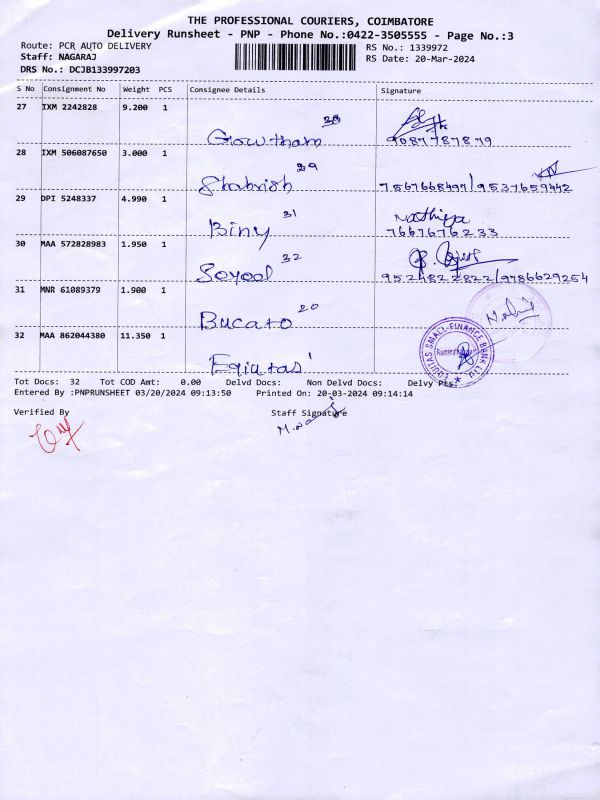 THE PROFESSIONAL COURIERS, COIMBATORE
Delivery Runsheet - PNP - Phone No.:0422-3505555 - Page No.:3
Route: PCR AUTO DELIVERY RS No.: 1339972
Staff: NAGARAJ RS Date: 20-Mar-2024
DRS No.: DCJB133997203
S No Consignment No Weight PCS Consignee Details Signature
27 IXM 2242828 9.200 1
28
Gowtham 9087787879
28 IXM 506087650 3.000 1
29
7567668497/9537659442
29 DPI 5248337 4.990 1
31 Nathiya
Biny 7667676233
30 MAA 572828983 1.950 1
32
9524822822/9786629254
31 MNR 61089379 1.900 1
20
Bucato
32 MAA 862044380 11.350 1
EQUITAS SMALL FINANCE BANK LTD
Equitas 1
Tot Docs: 32 Tot COD Amt: 0.00 Delvd Docs: Non Delvd Docs: Delvy Pts:
Entered By :PNPRUNSHEET 03/20/2024 09:13:50 Printed On: 20-03-2024 09:14:14
Verified By Staff Signature